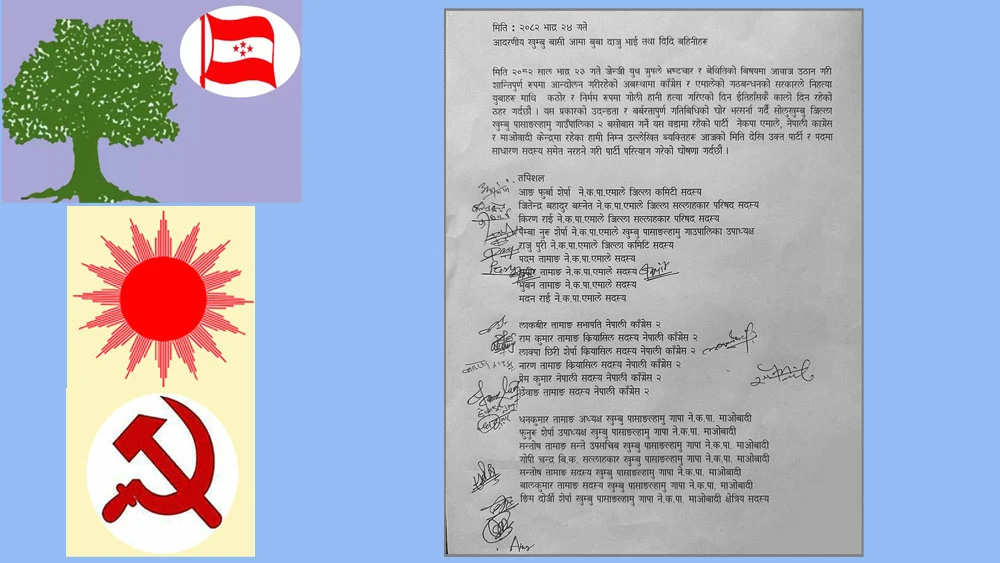 मिति : २०८२ भाद्र २४ गते
आदरणीय खुम्बु बासी आमा बुबा दाजु भाई तथा दिदि बहिनीहरू
मिति २०८२ साल भाद्र २३ गते जेन्जी युथ ग्रुपले भ्रष्टचार र बेथितिको बिषयमा आवाज उठान गरी
शान्तिपुर्ण रूपमा आन्दोलन गरीरहेको अबस्थामा काँग्रेस र एमालेको गठबन्धनको सरकारले निहत्था
युबाहरू माथि कठोर र निर्मम रूपमा गोली हानी हत्या गरिएको दिन ईतिहाँसकै कालो दिन रहेको
ठहर गर्दछौं । यस प्रकारको उदन्डता र बर्बरतापुर्ण गतिबिधिको घोर भर्त्सना गर्दै सोलुखुम्बु जिल्ला
खुम्बु पासाङल्हामु गाउँपालिका २ बसोबास गर्ने यस वडामा रहेको पार्टी नेकपा एमाले, नेपाली काग्रेस
र माओवादी केन्द्रमा रहेका हामी निम्न उल्लेखित ब्यक्तिहरू आजको मिति देखि उक्त पार्टी र पदमा
साधारण सदस्य समेत नरहने गरी पार्टी परित्याग गरेको घोषणा गर्दछौं ।
तपिशल
जाङ फुर्बा शेर्पा ने.क.पा.एमाले जिल्ला कमिटी सदस्य
जितेन्द्र बहादुर बस्नेत ने.क.पा.एमाले जिल्ला सल्लाहकार परिषद सदस्य
किरण राई ने.क.पा.एमाले जिल्ला सल्लाहकार परिषद सदस्य
पेम्बा नुरू शेर्पा ने.क.पा.एमाले खुम्बु पासाङल्हामु गाउपालिका उपाध्यक्ष
राजु पुरी ने.क.पा.एमाले जिल्ला कमिटि सदस्य
पदम तामाङ ने.क.पा.एमाले सदस्य
तामाङ ने.क.पा.एमाले सदस्य
भुबन तामाङ ने.क.पा.एमाले सदस्य
मदन राई ने.क.पा.एमाले सदस्य
लाकबीर तामाङ सभापति नेपाली काँग्रेस २
राम कुमार तामाङ क्रियासिल सदस्य नेपाली काँग्रेस २
लाक्पा छिरी शेर्पा क्रियासिल सदस्य नेपाली काँग्रेस २
नारण तामाङ क्रियासिल सदस्य नेपाली काँग्रेस २
प्रेम कुमार नेपाली सदस्य नेपाली काँग्रेस २
छेवाङ तामाङ सदस्य नेपाली काँग्रेस २
धनकुमार तामाङ अध्यक्ष खुम्बु पासाङल्हामु गापा ने.क.पा. माओबादी
फुनुरू शेर्पा उपाध्यक्ष खुम्बु पासाङल्हामु गापा ने.क.पा. माओबादी
सन्तोष तामाङ सन्ते उपसचिब खुम्बु पासाङल्हामु गापा ने.क.पा. माओबादी
गोपी चन्द्र बि.क. सल्लाहकार खुम्बु पासाङल्हामु गापा ने.क.पा. माओबादी
सन्तोष तामाङ सदस्य खुम्बु पासाङल्हामु गापा ने.क.पा. माओबादी
बालकुमार तामाङ सदस्य खुम्बु पासाङल्हामु गापा ने.क.पा. माओबादी
ङिम दोर्जी शेर्पा खुम्बु पासाङल्हामु गापा ने.क.पा. माओबादी क्षेत्रिय सदस्य